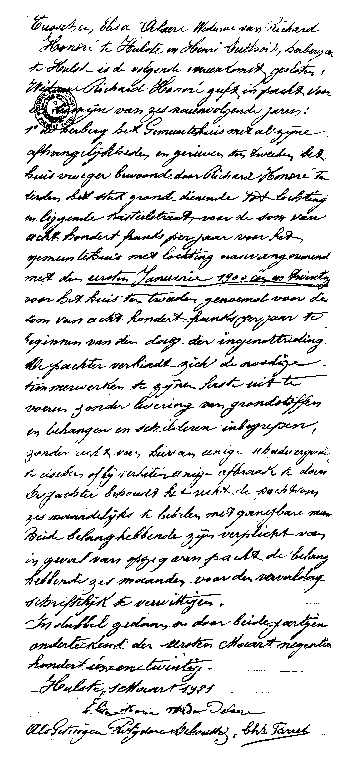 Tusschen, Elisa Delaere Weduwe van Richard
Honoré te Hulste en Henri Guillemit, herbergier
te Hulste is de volgende overeenkomst gesloten:
Weduwe Richard Honoré geeft in pacht voor
een termijn van zes naaeenvolgende jaren:
1° de herberg het Gemeentehuis met al zijne
afhangelijkheden en gerieven ten tweeden het
huis vroeger bewoond door Richard Honoré ten
derden het stuk grond dienende tot lochting
en liggende Kasteelstraat, voor de som van
acht hondert franks per jaar voor het
gemeentehuis met lochting aanvang nemend
met den eersten Januarier 1900 één en twintig
voor het huis ten tweeden genoemd voor de
som van acht hondert franks per jaar te
beginnen van den dag der ingenottreding.
De pachter verbindt zich de noodige
timmerwerken te zijnen laste uit te
voeren zonder levering van grondstoffen
en behangen en schilderen inbegrepen,
zonder recht van hiervan eenige schadevergoed.
te eischen of bij verlaten eenige afbraak te doen
De pachter behoudt het recht de pachtsom
zes maandelijks te betalen met gangbare munt
Beide belanghebbende zijn verplicht van
in geval van opzeg van pacht de belang
hebbende zes maanden voor den vervaldag
schriftelijk te verwittigen.
In dubbel gedaan en door beide partijen
onderteekend den eersten Maart negentien
hondert een en twintig.
Hulste, 1 Maart 1921
Als Getuigen